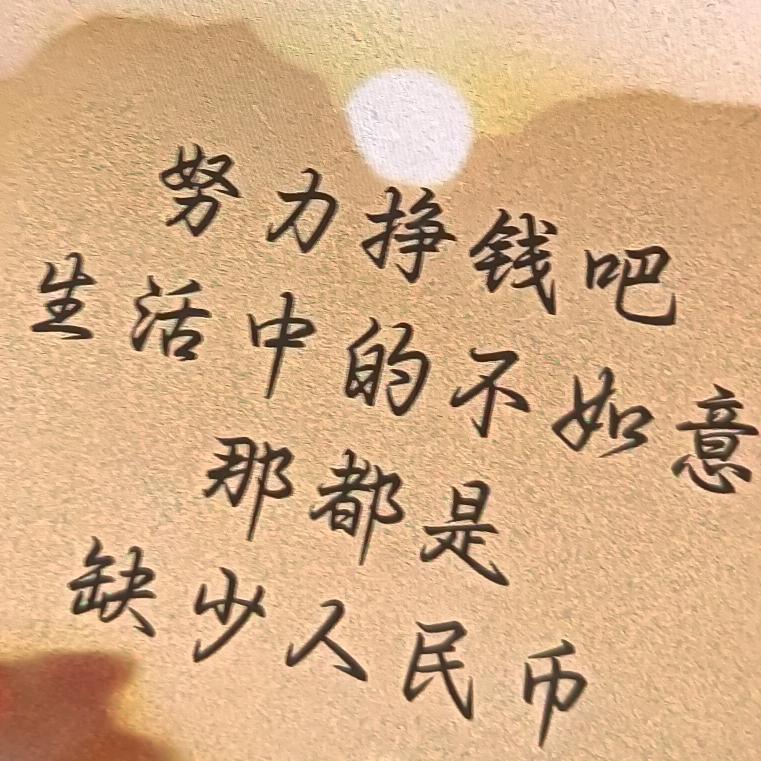 努力挣钱吧
生活中的不如意
那都是
缺少人民币